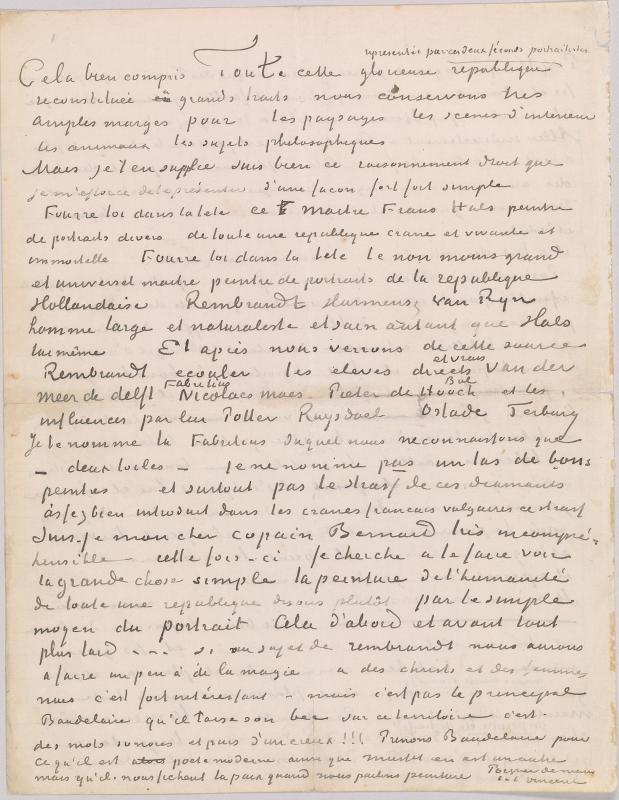 représentée par ces deux féconds portraitistes
Cela bien compris Toute cette glorieuse république
reconstituée en grands traits nous conservons très
amples marges pour les paysages les scènes d'intérieur
les animaux les sujets philosophiques
Mais je t'en supplie suis bien ce raisonnement droit que
je m'efforce de te présenter d'une façon fort fort simple
Fourre toi dans la tête ce maitre Frans Hals peintre
de portraits divers de toute une republique crane et vivante et
immortelle Fourre toi dans la tete le non moins grand
et universel maitre peintre de portraits de la republique
Hollandaise Rembrandt Harmensz van Ryn
homme large et naturaliste et sain autant que Hals
lui même Et après nous verrons de cette source
Rembrandt ecouler les eleves directs et vrais Van der
meer de delft Fabritius Nicolaes maes Pieter de Hooch Bol et les
influencés par lui Potter Ruysdael Ostade Terburg
Je te nomme là Fabritius duquel nous ne connaissons que
– deux toiles – je ne nomme pas un tas de bons
peintres et surtout pas le strass de ces diamants
assez bien introduit dans les cranes français vulgaires ce strass
Suis-je mon cher copain Bernard très incompré=
hensible cette fois-ci je cherche à te faire voir
la grande chose simple la peinture de l'humanité
de toute une republique disons plutôt par le simple
moyen du portrait Cela d'abord et avant tout
plus tard --- si au sujet de rembrandt nous avons
a faire un peu à de la magie a des christs et des femmes
nues c'est fort intéressant – mais c'est pas le principal
Baudelaire qu'il taise son bec sur ce territoire c'est
des mots sonores et puis d'un creux !!! Prenons Baudelaire pour
ce qu'il est poete moderne ainsi que musset en est un autre
mais qu'ils nous fichent la paix quand nous parlons peinture
t. à t. Vincent